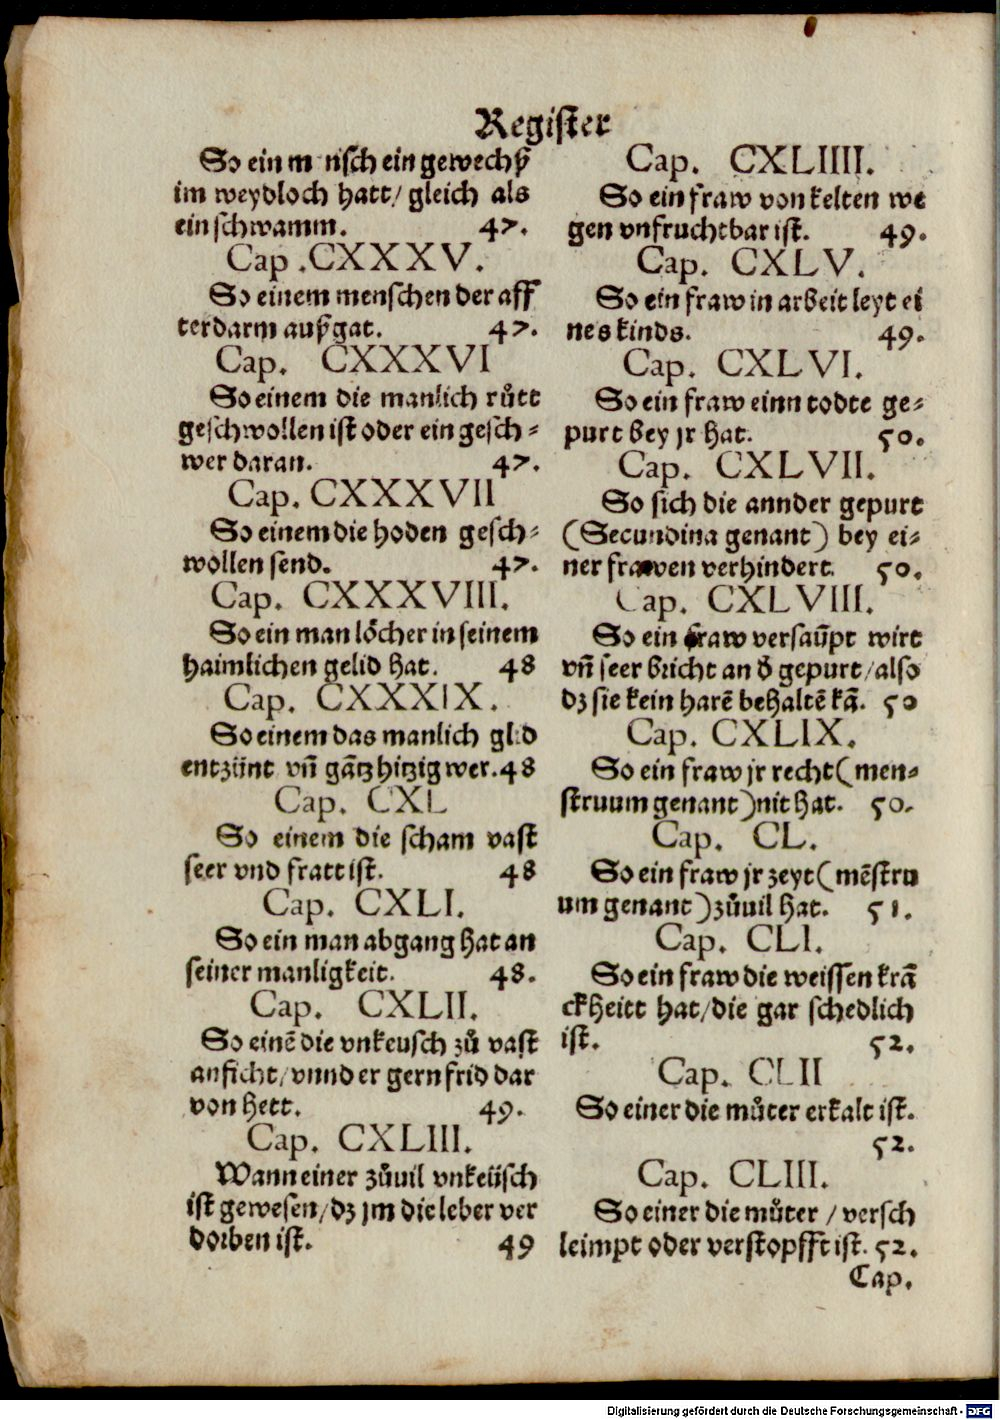 Register
So ein m nsch ein gewechß
im weydloch hatt/ gleich als
ein schwamm. 47.
Cap .CXXXV.
So einem menschen der aff
terdarm außgat. 47.
Cap. CXXXVI
So einem die manlich růtt
geschwollen ist oder ein gesch-
wer daran. 47.
Cap. CXXXVII
So einem die hoden gesch-
wollen send. 47.
Cap. CXXXVIII.
So ein man lőcher in seinem
haimlichen gelid hat. 48
Cap. CXXXIX.
So einem das manlich glid
entzünt vñ gãtz hitzig wer. 48
Cap. CXL
So einem die scham vast
seer vnd fratt ist. 48
Cap. CXLI.
So ein man abgang hat an
seiner manligkeit. 48.
Cap. CXLII.
So einẽ die vnkeusch zů vast
anficht/ vnnd er gern frid dar
von hett. 49.
Cap. CXLIII.
Wann einer zůuil vnkeüsch
ist gewesen/ dz jm die leber ver
dorben ist. 49
Cap. CXLIIII.
So ein fraw von kelten we
gen vnfruchtbar ist. 49.
Cap. CXLV.
So ein fraw in arbeit leyt ei
nes kinds. 49.
Cap. CXLVI.
So ein fraw einn todte ge-
purt bey jr hat. 50.
Cap. CXLVII.
So sich die annder gepurt
(Secundina genant) bey ei-
ner frawen verhindert. 50.
Cap. CXLVIII.
So ein fraw versaũpt wirt
vñ seer bricht an d̓ gepurt/ also
dz sie kein harẽ behaltẽ kã. 50
Cap. CXLIX.
So ein fraw jr recht (men-
struum genant) nit hat. 50.
Cap. CL.
So ein fraw jr zeyt (mẽstru
um genant) zůuil hat. 51.
Cap. CLI.
So ein fraw die weissen krã
ckheitt hat/ die gar schedlich
ist. 52.
Cap. CLII
So einer die můter erkalt ist.
52.
Cap. CLIII.
So einer die můter / versch
leimpt oder verstopfft ist. 52.
Cap.
Digitalisierung gefördert durch die Deutsche Forschungsgemeinschaft - DFG